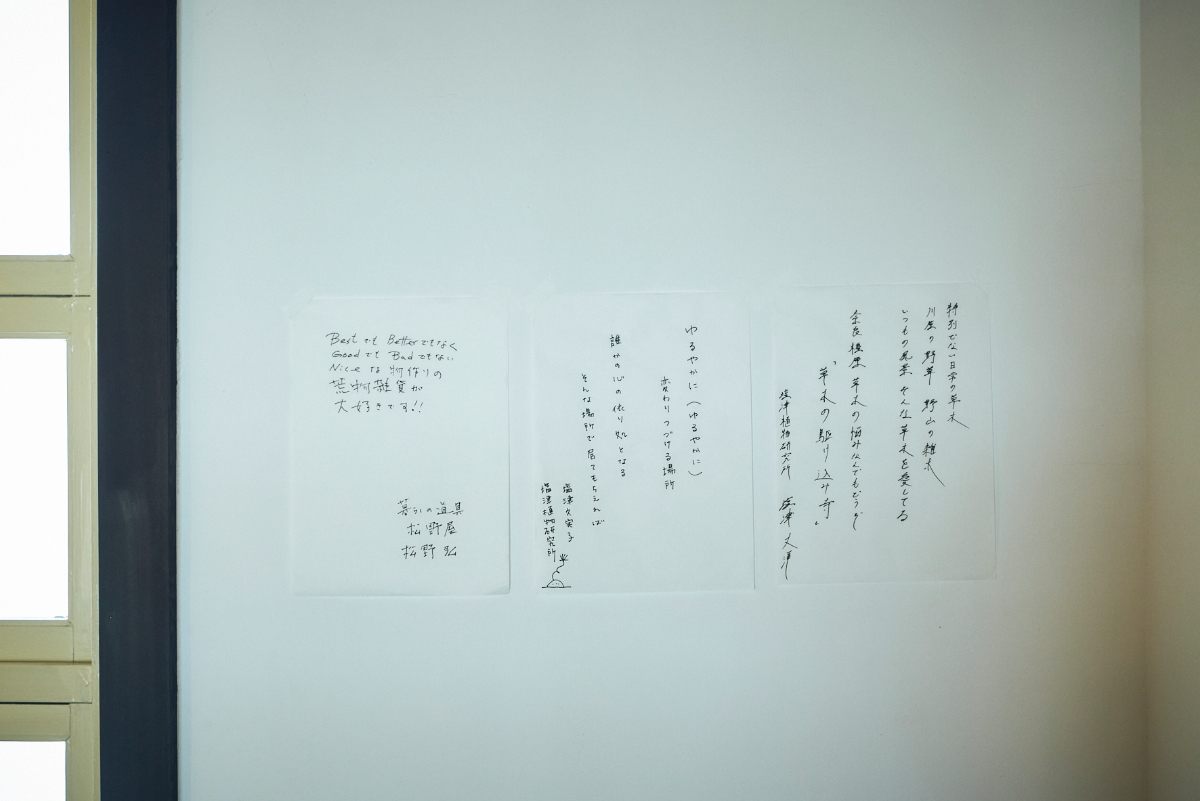 特別でない日常の草木
川原の野草 野山の雑木
いつもの風景 そんな草木を愛してる
奈良橿原 草木の悩みなんでもどうぞ
"草木の駆け込み寺"
塩津植物研究所 塩津 丈洋
ゆるやかに(ゆるやかに)
変わりつづける場所
誰かの心の依り処となる
そんな場所で居てもらえれば
塩津久実子
塩津植物研究所
Bestでも Betterでもなく
Goodでも Badでもない
Niceな 物作りの
荒物雑貨が
大好きです!!
暮らしの道具
松野屋
松野 弘